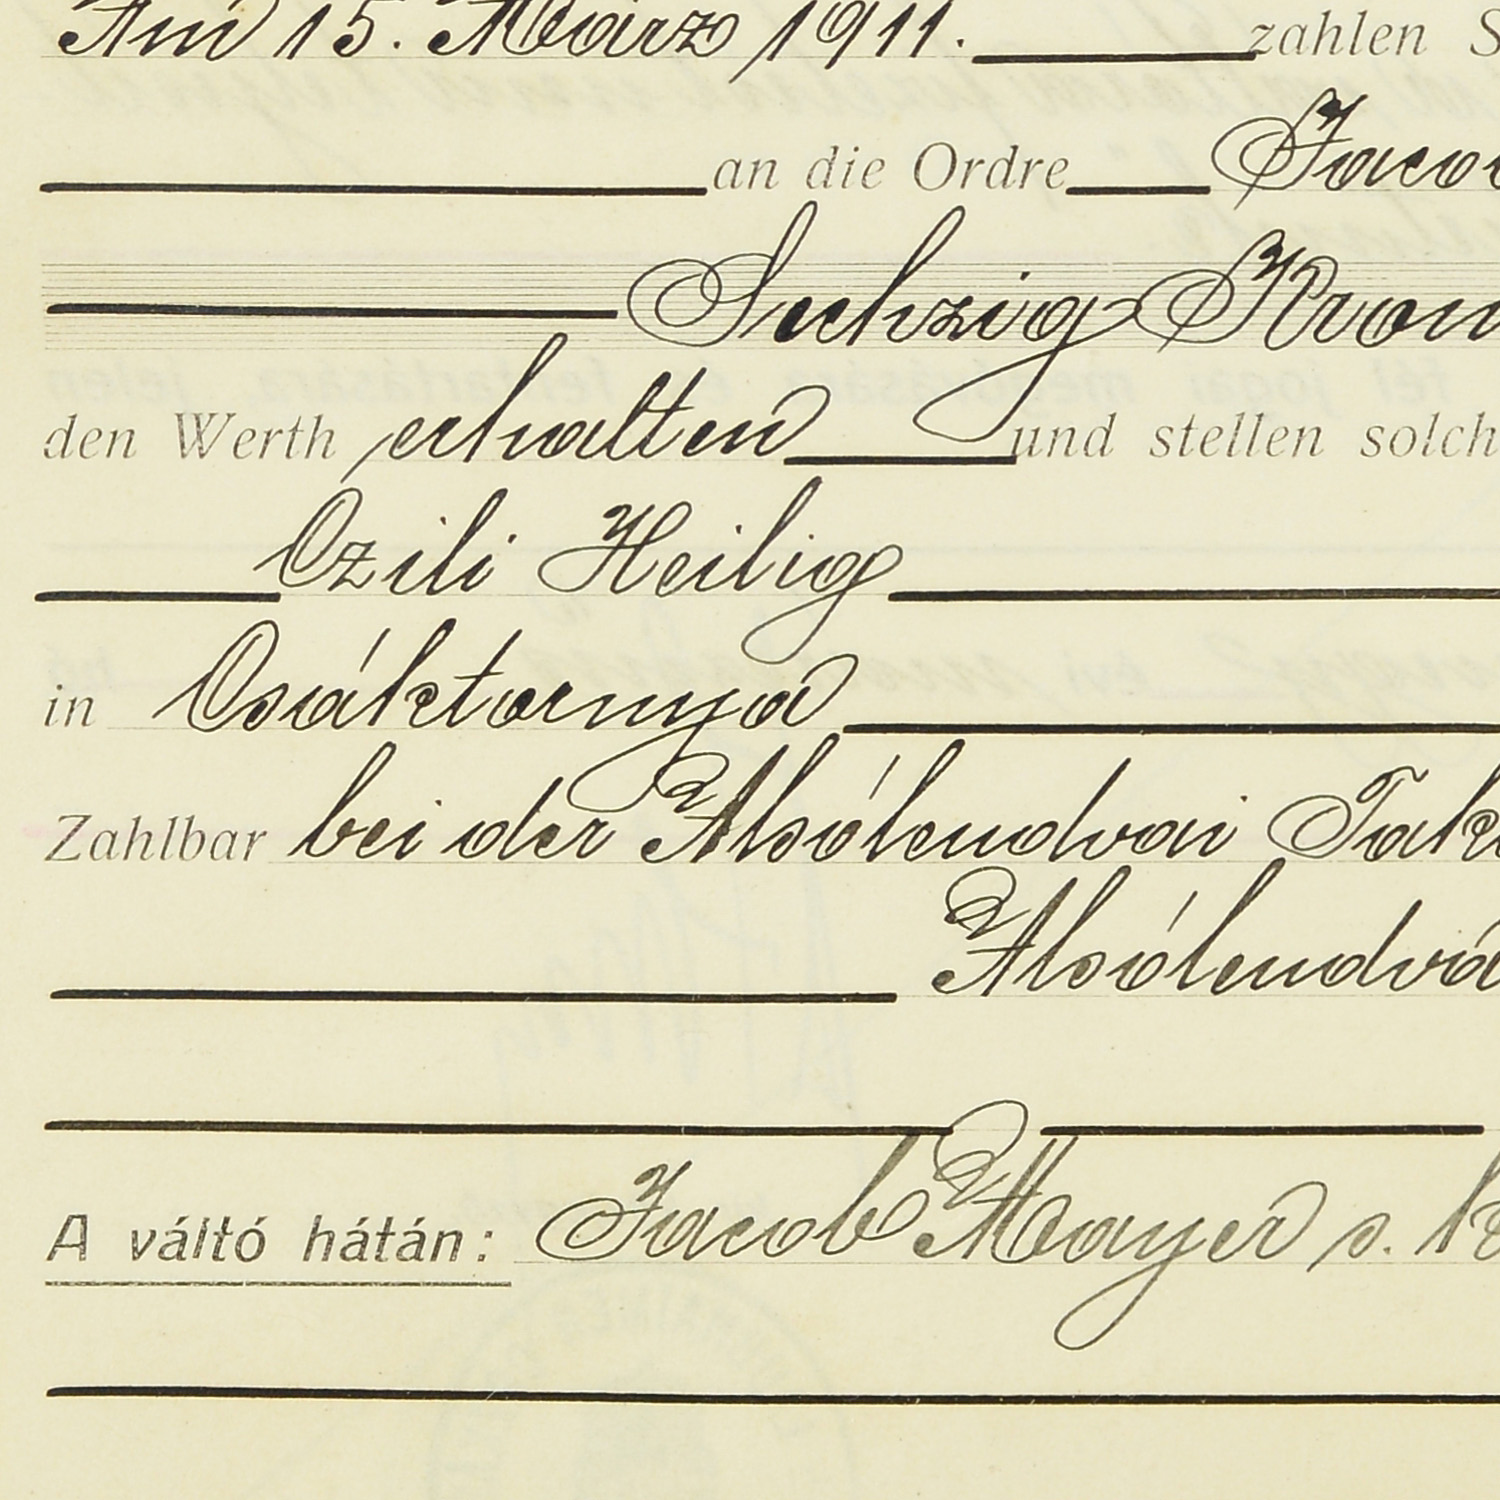 Am 15. März 1911. zahlen S
an die Ordre Jacob
Sechzig Kron
den Werth erhalten und stellen solch
Czili Heilig
in Csáktornya
Zahlbar bei der Alsólendvai Tak
Alsólendva
A váltó hátán: Jacob Mayer s. k